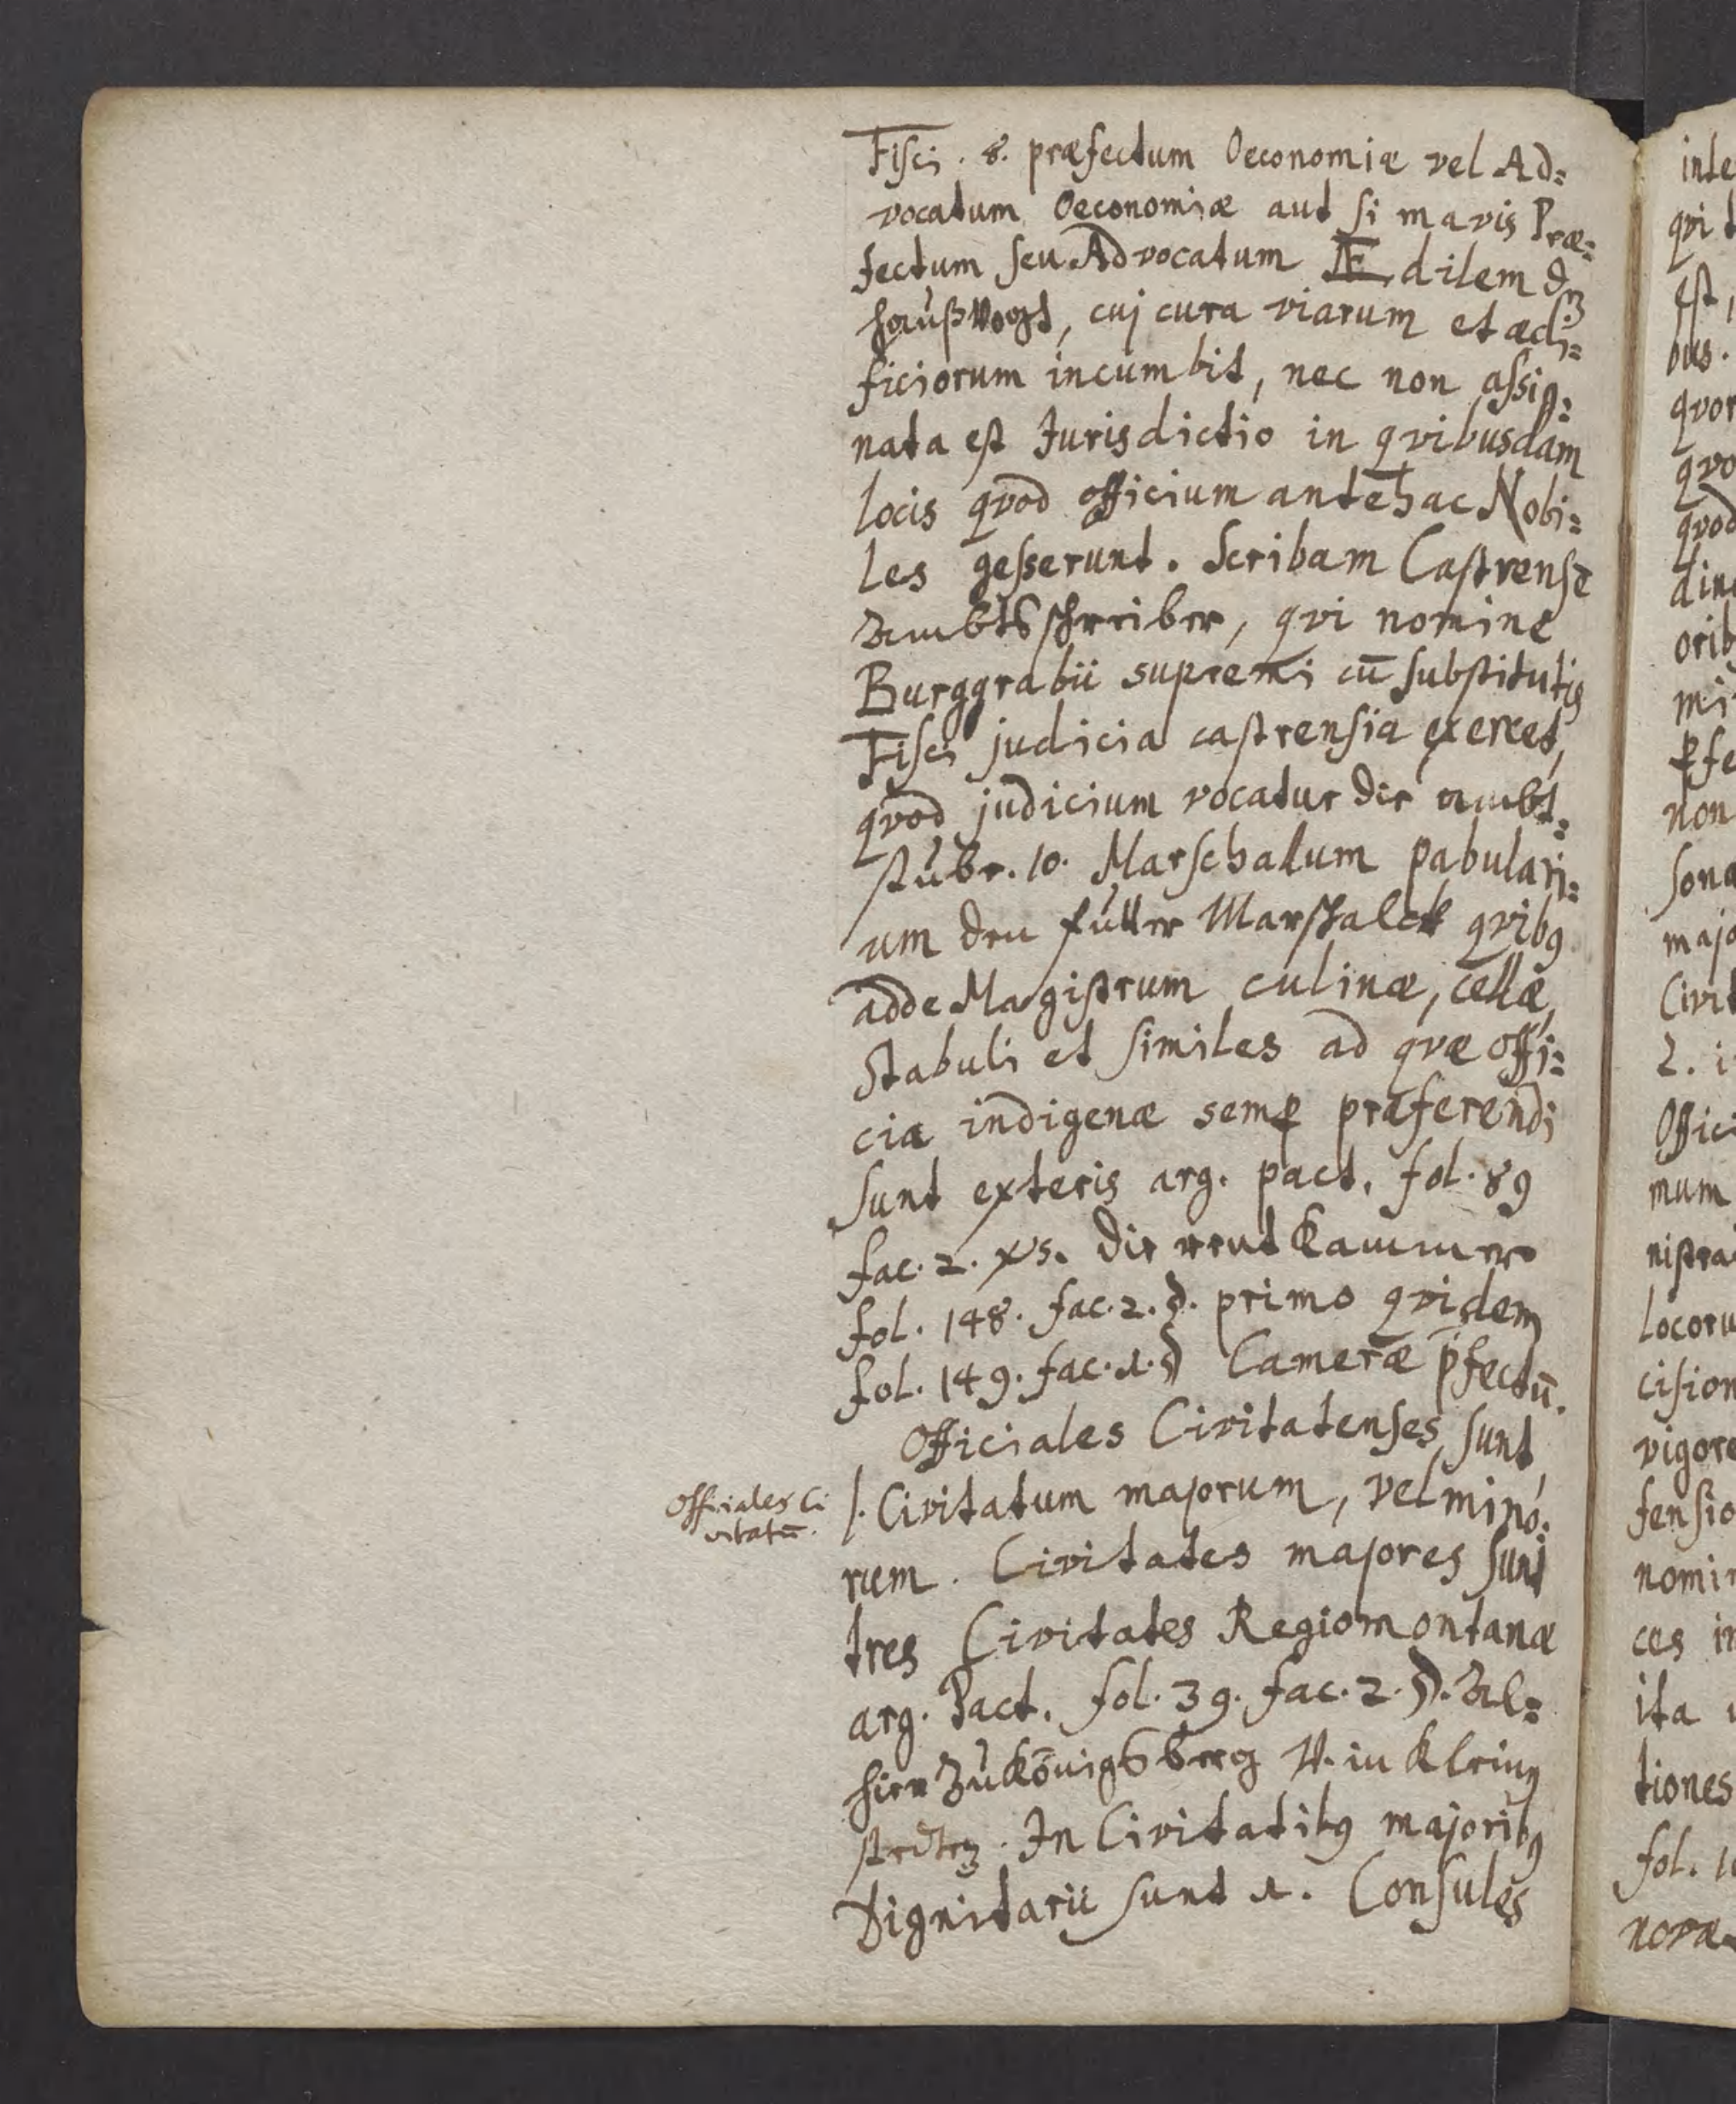 Fisci. 8. præfectum Oeconomiæ vel Ad=
vocatum Oeconomiæ aut si mavis Præ=
fectum seu Advocatum Ædilem dē
haußvogt, cuj cura viarum et ædi=
ficiorum incumbit, nec non assig=
nata est Jurisdictio in qvibusdam
locis qvod officium antehac Nobi=
les gesserunt. Scribam Castrensē
Ambtsschreiber, qvi nomine
Burggrabii supremi cū substitutis
Fisci judicia castrensia exercet,
qvod judicium vocatur die ambt=
stube. 10. Marschallum pabulari=
um den futter Marschalck qvibꝰ
adde Magistrum culinæ, cellæ,
Stabuli et similes ad qvæ offi=
cia indigenæ semꝑ præferendi
sunt exteris arg. pact. fol. 89
fac. 2. xs. die rent Kammer
fol. 148. fac. 2. §. primo qvidem
fol. 149. fac. 1. § Cameræ p̄fectū.
Officiales Civitatenses sunt
Officiales Ci
vitatū.
1. Civitatum majorum, vel mino=
rum. Civitates majores sunt
tres Civitates Regiomontanæ
arg. Pact. fol. 39. fac. 2. §. Al=
hier zu Königsberg V. in Kleinen
stedten. In Civitatibꝰ majoribꝰ
Dignitarii sunt 1. Consules